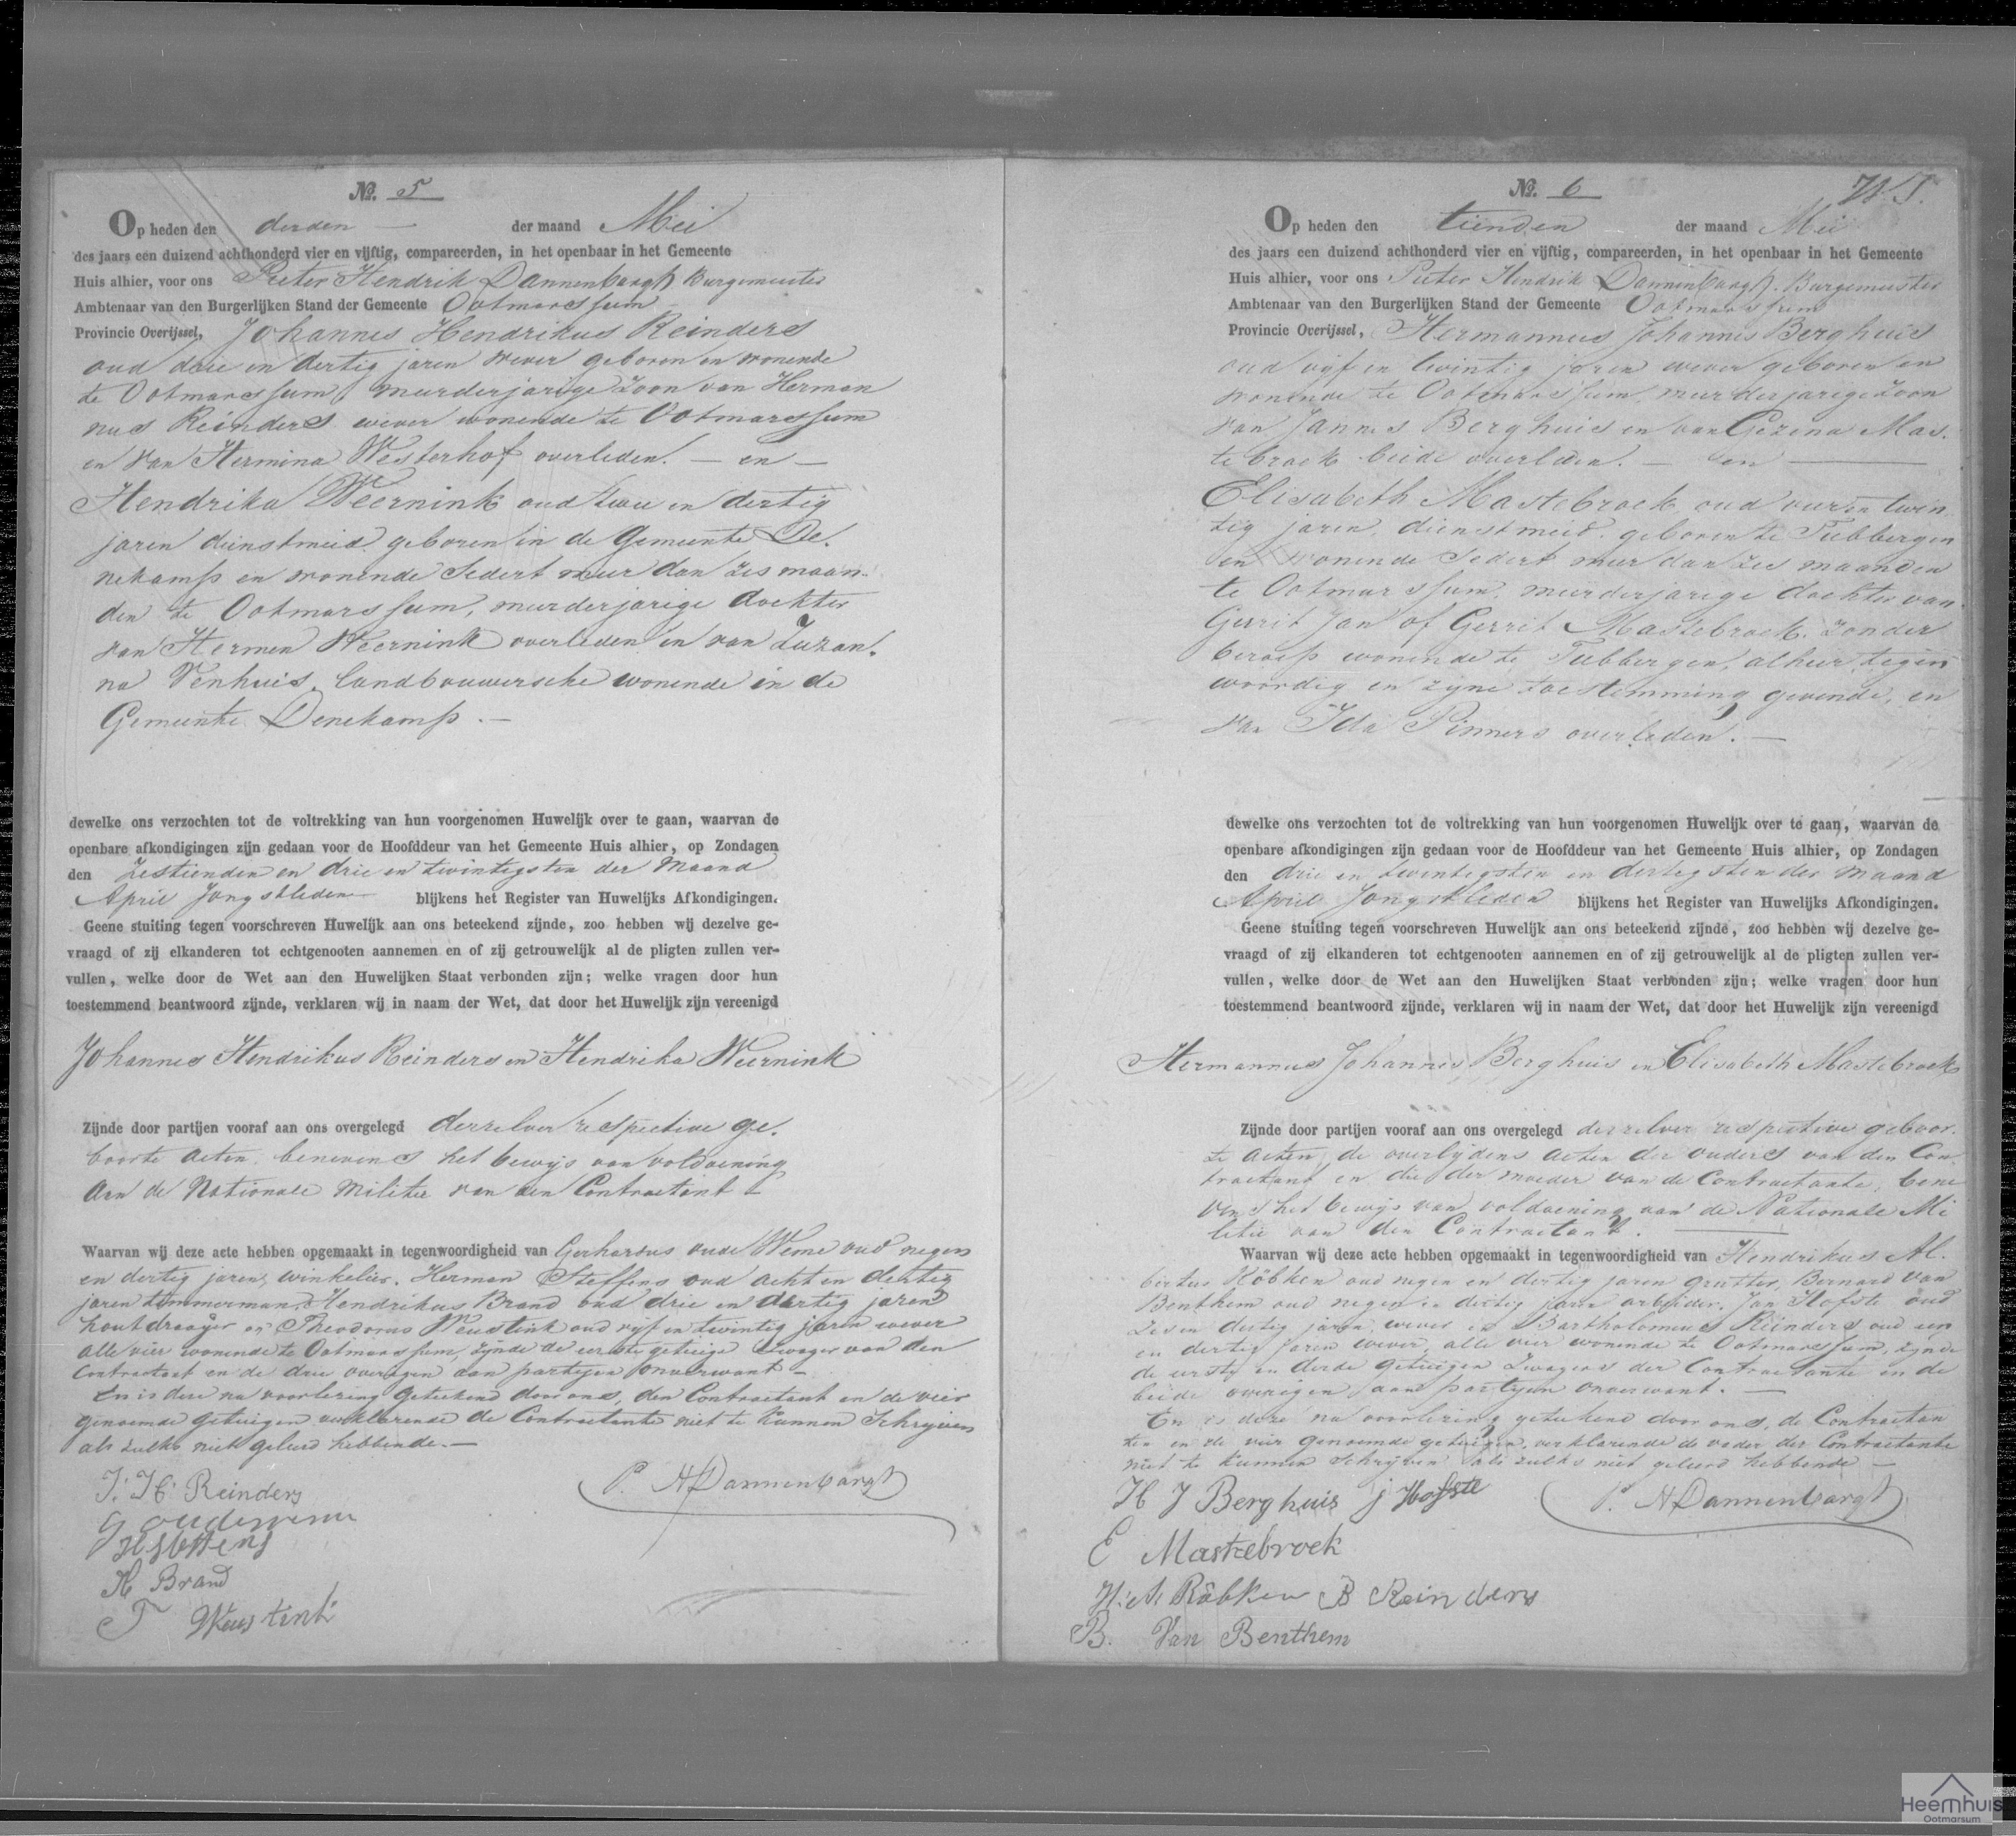 No. 5
Op heden den derden der maand Mei
des jaars een duizend achthonderd vier en vijftig, compareerden, in het openbaar in het Gemeente
Huis alhier, voor ons Pieter Hendrik Dannenbargh Burgemeester
Ambtenaar van den Burgerlijken Stand der Gemeente Ootmarssum
Provincie Overijssel, Johannes Hendrikus Reinders
oud drie en dertig jaren wever geboren en wonende
te Ootmarssum, meerderjarige zoon van Herman
nus Reinders wever wonende te Ootmarssum
en van Hermina Westerhof overleden. — en —
Hendrika Weernink oud twee en dertig
jaren dienstmeid geboren in de Gemeente De.
nekamp en wonende sedert meer dan zes maan.
den te Ootmarssum, meerderjarige dochter
van Hermen Weernink overleden en van Zuzan.
na Venhuis, landbouwersche wonende in de
Gemeente Denekamp. —
dewelke ons verzochten tot de voltrekking van hun voorgenomen Huwelijk over te gaan, waarvan de
openbare afkondigingen zijn gedaan voor de Hoofddeur van het Gemeente Huis alhier, op Zondagen
den Zestienden en drie en twintigsten der maand
April Jongstleden blijkens het Register van Huwelijks Afkondigingen.
Geene stuiting tegen voorschreven Huwelijk aan ons beteekend zijnde, zoo hebben wij dezelve ge-
vraagd of zij elkanderen tot echtgenooten aannemen en of zij getrouwelijk al de pligten zullen ver-
vullen, welke door de Wet aan den Huwelijken Staat verbonden zijn; welke vragen door hun
toestemmend beantwoord zijnde, verklaren wij in naam der Wet, dat door het Huwelijk zijn vereenigd
Johannes Hendrikus Reinders en Hendrika Weernink
Zijnde door partijen vooraf aan ons overgelegd derzelver respective ge.
boorte acten, benevens het bewijs van voldoening
aan de Nationale Militie van den Contractant —
Waarvan wij deze acte hebben opgemaakt in tegenwoordigheid van Gerhardus oude Weme oud negen
en dertig jaren, winkelier. Herman Steffens oud acht en dertig
jaren timmerman, Hendrikus Brand oud drie en dertig jaren
houtdraayer en Theodorus Weustink oud vijf en twintig jaren wever
alle vier wonende te Ootmarssum, zijnde de eerste getuige zwager van den
Contractant en de drie overigen aan partyen onverwant —
En is deze na voorlezing geteekend door ons, den Contractant en de vier
genoemde getuigen verklarende de Contractante niet te kunnen Schrijven
als zulks niet geleerd hebbende. —
J. H. Reinders
P. H Dannenbargh
G oudeweme
H Steffens
H Brand
T Weustink
No. 6
Op heden den tienden der maand Mei
des jaars een duizend achthonderd vier en vijftig, compareerden, in het openbaar in het Gemeente
Huis alhier, voor ons Pieter Hendrik Dannenbargh. Burgemeester
Ambtenaar van den Burgerlijken Stand der Gemeente Ootmarssum
Provincie Overijssel, Hermannus Johannes Berghuis
oud vijf en twintig jaren wever geboren en
wonende te Ootmarssum, meerderjarige zoon
van Jannes Berghuis en van Gezina Mas.
tebroek beide overleden. — en —
Elisabeth Mastebroek, oud vier en twin
tig jaren, dienstmeid. geboren te Tubbergen
en wonende sedert meer dan zes maanden
te Ootmarssum, meerderjarige dochter van
Gerrit Jan of Gerrit Mastebroek. zonder
beroep wonende te Tubbergen, alhier tegen
woordig en zyne toestemming gevende, en
van Ida Pinners overleden. —
dewelke ons verzochten tot de voltrekking van hun voorgenomen Huwelijk over te gaan, waarvan de
openbare afkondigingen zijn gedaan voor de Hoofddeur van het Gemeente Huis alhier, op Zondagen
den drie en twintigsten en dertigsten der maand
April Jongstleden blijkens het Register van Huwelijks Afkondigingen.
Geene stuiting tegen voorschreven Huwelijk aan ons beteekend zijnde, zoo hebben wij dezelve ge-
vraagd of zij elkanderen tot echtgenooten aannemen en of zij getrouwelijk al de pligten zullen ver-
vullen, welke door de Wet aan den Huwelijken Staat verbonden zijn; welke vragen door hun
toestemmend beantwoord zijnde, verklaren wij in naam der Wet, dat door het Huwelijk zijn vereenigd
Hermannus Johannes Berghuis en Elisabeth Mastebroek
Zijnde door partijen vooraf aan ons overgelegd derzelver respective geboor.
te acten, de overlydens acten der ouders van den Con
tractant en die der moeder van de Contractante, bene
vens het bewijs van voldoening aan de Nationale Mi
litie van den Contractant.
Waarvan wij deze acte hebben opgemaakt in tegenwoordigheid van Hendrikus Al.
bertus Röbken oud negen en dertig jaren grutter, Bernard van
Benthem oud negen en dertig jaren arbeider. Jan Hofste oud
zes en dertig jaren wever en Bartholomeus Reinders oud een
en dertig jaren wever, alle vier wonende te Ootmarssum, zynde
de eerste en derde getuigen zwagers der Contractante en de
beide overigen aan partyen onverwant. —
En is deze na voorlezing geteekend door ons, de Contractan
ten en de vier genoemde getuigen, verklarende de vader der Contractante
niet te kunnen Schrijven als zulks niet geleerd hebbende —
H J Berghuis j Hofste
P. H Dannenbargh
E Mastebroek
H: A Röbken B Reinders
B. Van Benthem
Heemhuis
Ootmarsum